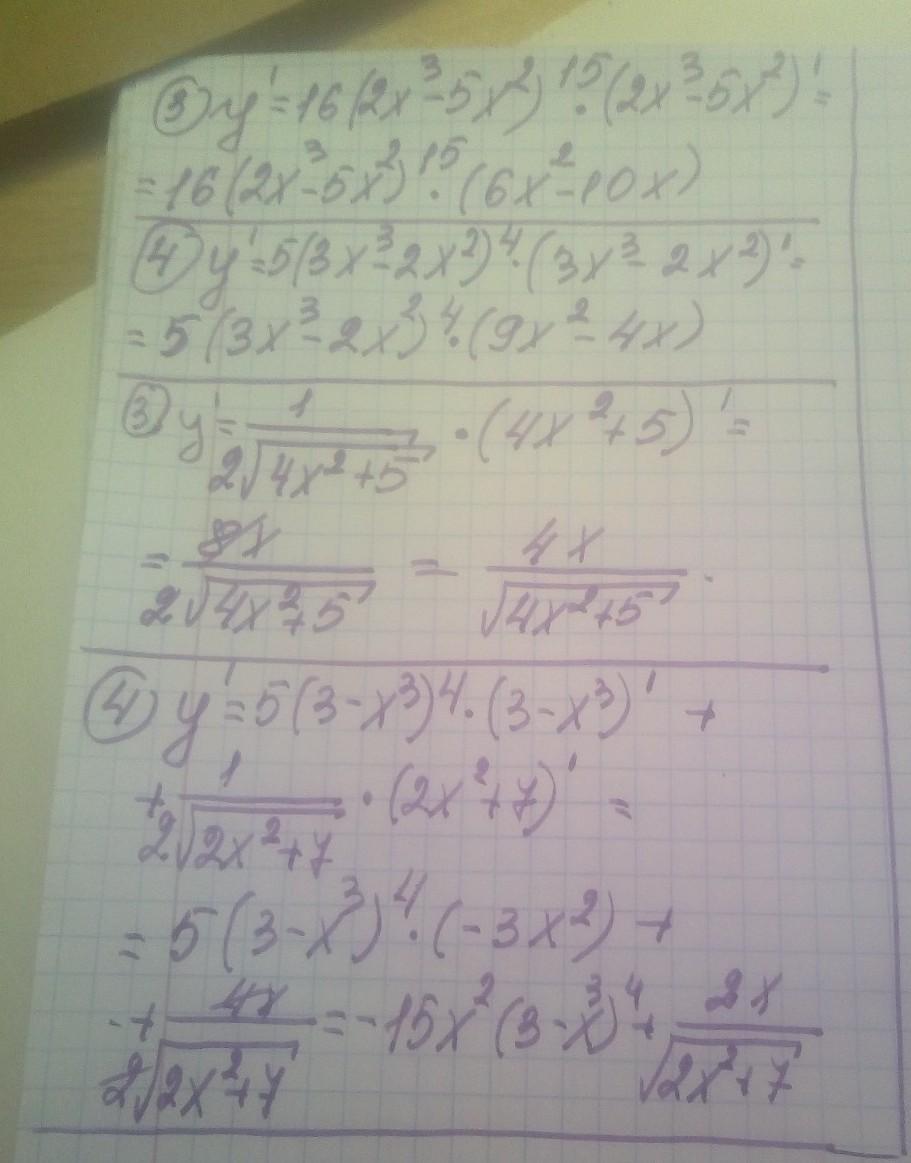 ③ y' = 16(2x³-5x²)¹⁵·(2x³-5x²)' =
= 16(2x³-5x²)¹⁵·(6x²-10x)
④ y' = 5(3x³-2x²)⁴·(3x³-2x²)' =
= 5(3x³-2x²)⁴·(9x²-4x)
③ y' = 1/(2√(4x²+5)) · (4x²+5)' =
= 8x/(2√(4x²+5)) = 4x/√(4x²+5).
④ y' = 5(3-x³)⁴·(3-x³)' +
+ 1/(2√(2x²+7)) · (2x²+7)' =
= 5(3-x³)⁴·(-3x²) +
+ 4x/(2√(2x²+7)) = -15x²(3-x³)⁴ + 2x/√(2x²+7)